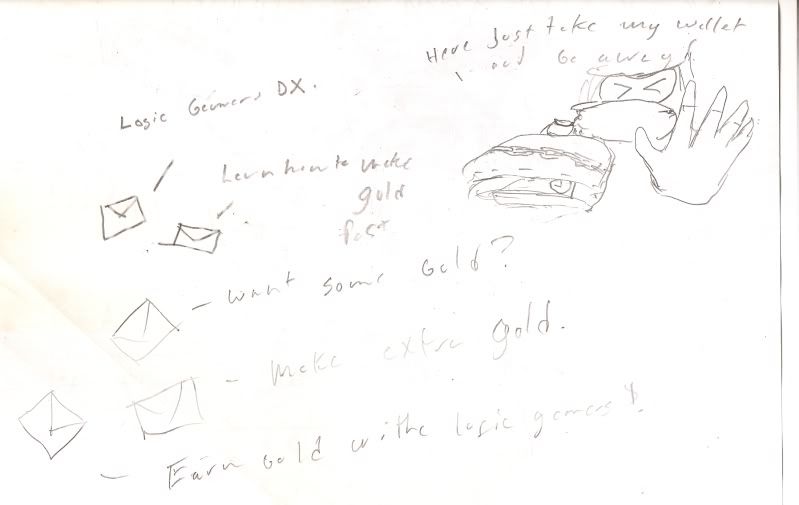 Here Just take my wallet
and Go away!
Logic Geamers DX.
Learn how to make
gold
fast
- want some Gold?
- make extra gold.
- Earn Gold withe logic gemers!